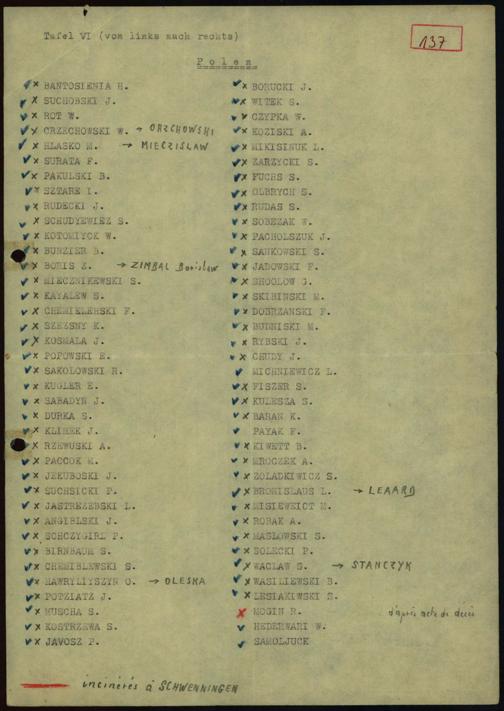 137
Tafel VI (vom links nach rechts)
Polen
BANTOSIENIA H.
SUCHOBSKI J.
ROT W.
CRZECHOWSKI W. → ORZCHOWSKI
HLASKO M. → MIECZISLAW
SURATA F.
PAKULSKI B.
SZTARE I.
RUDECKI J.
SCHUDYEWIEZ S.
KOTOMIYCK W.
BURZIER B.
BORIS Z. → ZIMBAL Borislaw
MIECZNIKEWSKI S.
KAYALEW S.
CHEMIELERSKI F.
SZEZSNY K.
KOSMALA J.
POPOWSKI E.
SAKOLOWSKI R.
KUGLER E.
SABADYN J.
DURKA S.
KLIHEK J.
RZEWUSKI A.
PACCOK M.
JEKUBOSKI J.
SUCHSICKI P.
JASTRZEBSKI L.
ANGIBLSKI J.
SCHCZYGIRL P.
BIRNBAUM S.
CHEMIBLEWSKI S.
HAWRYLIYSZYN O. → OLESKA
POTZIATZ J.
MUSCHA S.
KOSTRZEWA S.
JAVOSZ P.
BORUCKI J.
WITEK S.
CZYPKA W.
KOZISKI A.
MIKISINUK L.
ZARZYCKI S.
FUCHS S.
OLBRYCH S.
RUDAS S.
SOBEZAK W.
PACHOLSZUK J.
SANKOWSKI S.
JADOWSKI F.
SHOOLOW G.
SKIBINSKI M.
DOBRZANSKI F.
BUDNISKI M.
RYBSKI J.
CHUDY J.
MICHNIEWICZ L.
FISZER S.
KULESZA S.
BARAN K.
PAYAK F.
KIWETT B.
MROCZEK A.
ZOLADKIWICZ S.
BRONISLAUS L. → LEAARD
MISIEWEICT M.
ROBAK A.
MASLOWSKI S.
SOLECKI P.
WACLAW S. → STANCZYK
WASILIEWSKI B.
LESIAKIWSKI S.
MOGIN R. d'après acte de décès
HEDERWARI W.
SAMOLJUCK
incinérés à SCHWENNINGEN